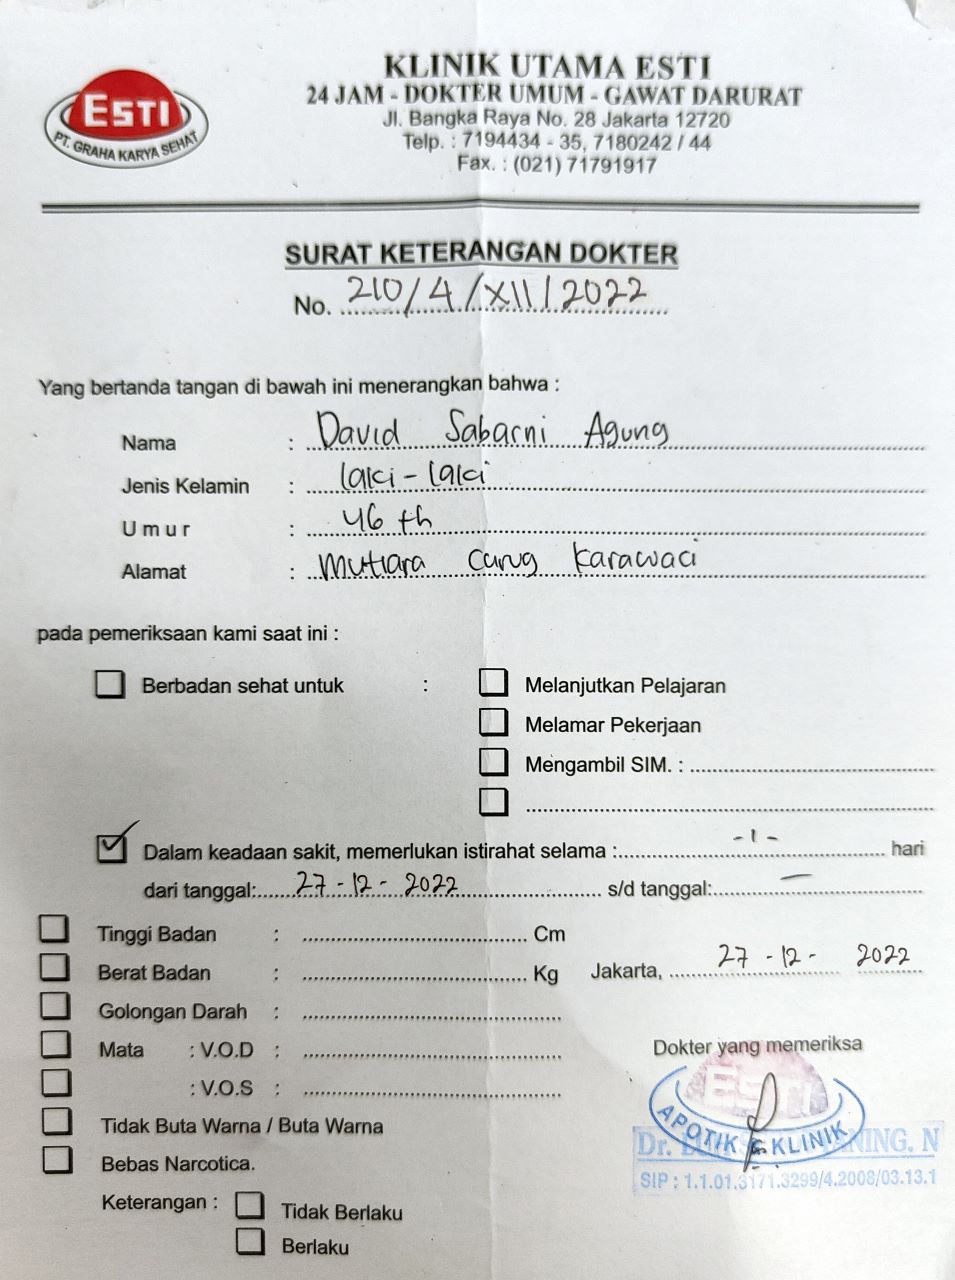 ESTI
PT. GRAHA KARYA SEHAT
KLINIK UTAMA ESTI
24 JAM - DOKTER UMUM - GAWAT DARURAT
Jl. Bangka Raya No. 28 Jakarta 12720
Telp. : 7194434 - 35, 7180242 / 44
Fax. : (021) 71791917
SURAT KETERANGAN DOKTER
No. 210/4/XII/2022
Yang bertanda tangan di bawah ini menerangkan bahwa :
Nama : David Sabarni Agung
Jenis Kelamin : laki-laki
Umur : 46 th
Alamat : Mutiara Curug Karawaci
pada pemeriksaan kami saat ini :
Berbadan sehat untuk : Melanjutkan Pelajaran
Melamar Pekerjaan
Mengambil SIM. :
Dalam keadaan sakit, memerlukan istirahat selama : -1- hari
dari tanggal: 27-12-2022 s/d tanggal: —
Tinggi Badan : Cm
Berat Badan : Kg Jakarta, 27-12-2022
Golongan Darah :
Mata : V.O.D :
Dokter yang memeriksa
: V.O.S :
Tidak Buta Warna / Buta Warna
Bebas Narcotica.
Keterangan : Tidak Berlaku
Berlaku
ESTI
APOTIK & KLINIK
Dr. NING. N
SIP : 1.1.01.3171.3299/4.2008/03.13.1